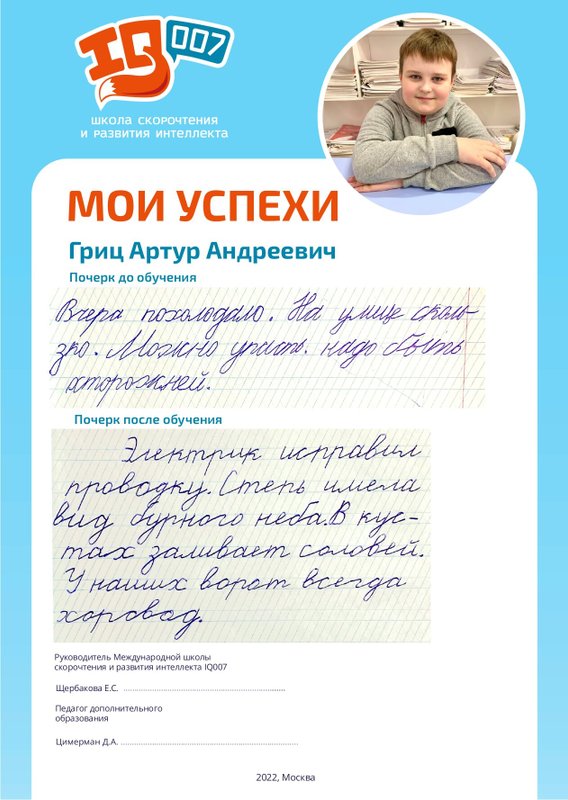 IQ 007
ШКОЛА СКОРОЧТЕНИЯ
И РАЗВИТИЯ ИНТЕЛЛЕКТА
МОИ УСПЕХИ
Гриц Артур Андреевич
Почерк до обучения
Вчера похолодало. На улице сколь-
зко. Можно упасть. надо быть
осторожней.
Почерк после обучения
Электрик исправил
проводку. Степь имела
вид бурного неба. В кус-
тах заливает соловей.
У наших ворот всегда
хоровод.
Руководитель Международной школы
скорочтения и развития интеллекта IQ007
Щербакова Е.С.
Педагог дополнительного
образования
Цимерман Д.А.
2022, Москва